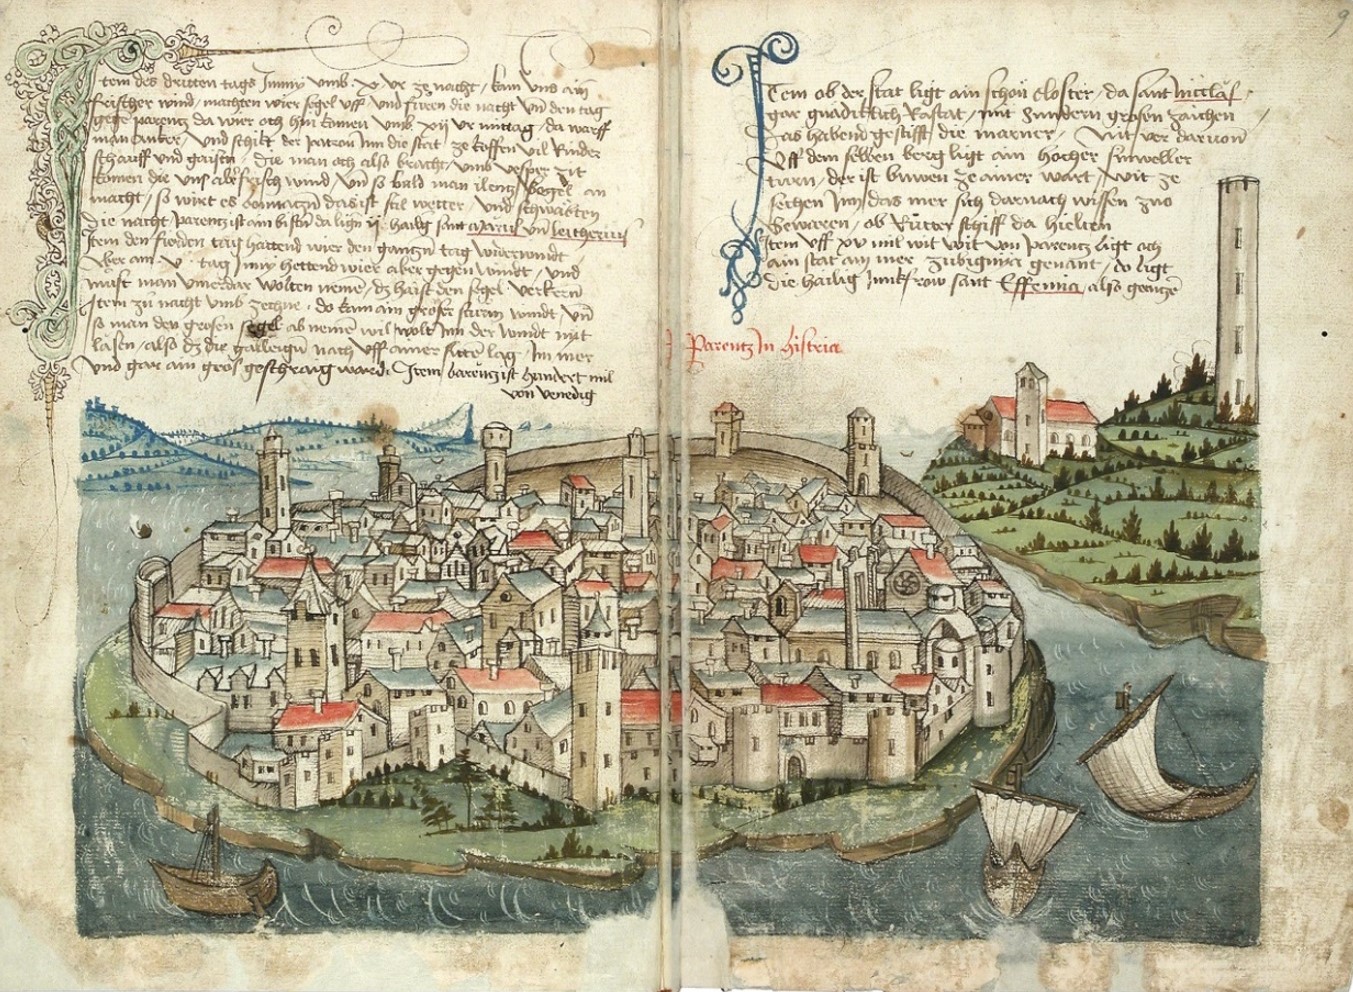 Item des dritten tags Junny vmb · x · vr ze nacht / kam vns ain
frischer wind / machten wier segel vff / vnd furen die nacht vnd den tag
gegen parentz da wier och hin komen vmb · xij vr mittag / da warff
man anker / vnd schikt der patron Inn die stat / ze koffen vil Rinder
schauff vnd gaisen · die man och also bracht / vmb vesper zit
komen die vns aber frisch wind / vnd so bald man segel an
macht / so wirt es das ist stil wetter / vnd
die nacht / parentz ist ain da lign ij hailig sant vnd leitherius
Item den tag hattend wier den gantzn tag widerwindt
Aber am · v · tag Junij hettend wier aber gegen windt / vnd
must man vnerdar wolten neme / dz haist den segel verkern
Item zu nacht vmb zechne · do kam ain groser sturm windt / vnd
so man den grosen segel ab nemen wil / wolt Inn der windt nit
lasen / also dz die galleigen nach vff ainer sitten lag / Im mer
vnd gar ain gros geschraig ward · Item barentz ist hundert mil
von venedig
9
Item ob der stat ligt ain schön closter / da sant Nicclas /
gar gnädiklich Rastat / mit grosen zaichen
das habend gestifft die marner / Nit ver daruon
Vff dem selben berg ligt ain hocher sinweller
turn / der ist buwen ze ainer wart / wit ze
sechen Inn das mer sich darnach wissen zuo
bewaren / ob schiff da hielten
Item vff xv mil wit von parentz ligt och
ain stat am mer zubiginia genant / do ligt
die hailig Junkfrow sant Effennia / also gantze
Parentz In histria